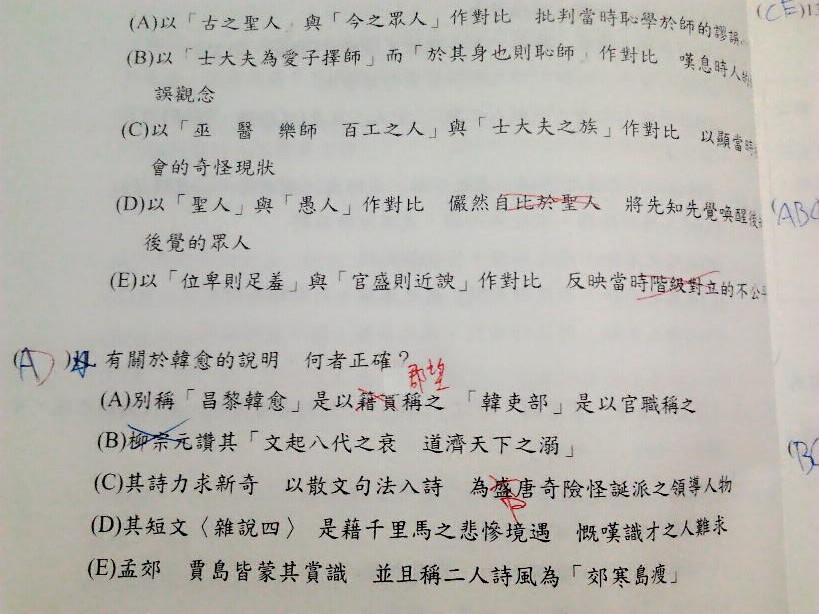 (A)以「古之聖人 與「今之眾人」作對比 批判當時恥學於師的謬誤
(B)以「士大夫為愛子擇師」而「於其身也則恥師」作對比 嘆息時人的
誤觀念
(C)以「巫 醫 樂師 百工之人」與「士大夫之族」作對比 以顯當時
會的奇怪現狀
(D)以「聖人」與「愚人」作對比 儼然自比於聖人 將先知先覺喚醒後
後覺的眾人
(E)以「位卑則足羞」與「官盛則近諛」作對比 反映當時階級對立的不公
(A) 有關於韓愈的說明 何者正確?
郡望
(A)別稱「昌黎韓愈」是以籍貫稱之 「韓吏部」是以官職稱之
(B)柳宗元讚其「文起八代之衰 道濟天下之溺」
(C)其詩力求新奇 以散文句法入詩 為盛唐奇險怪誕派之領導人物
中
(D)其短文〈雜說四〉 是藉千里馬之悲慘境遇 慨嘆識才之人難求
(E)孟郊 賈島皆蒙其賞識 並且稱二人詩風為「郊寒島瘦」
(CE)13
(ABC
(BC